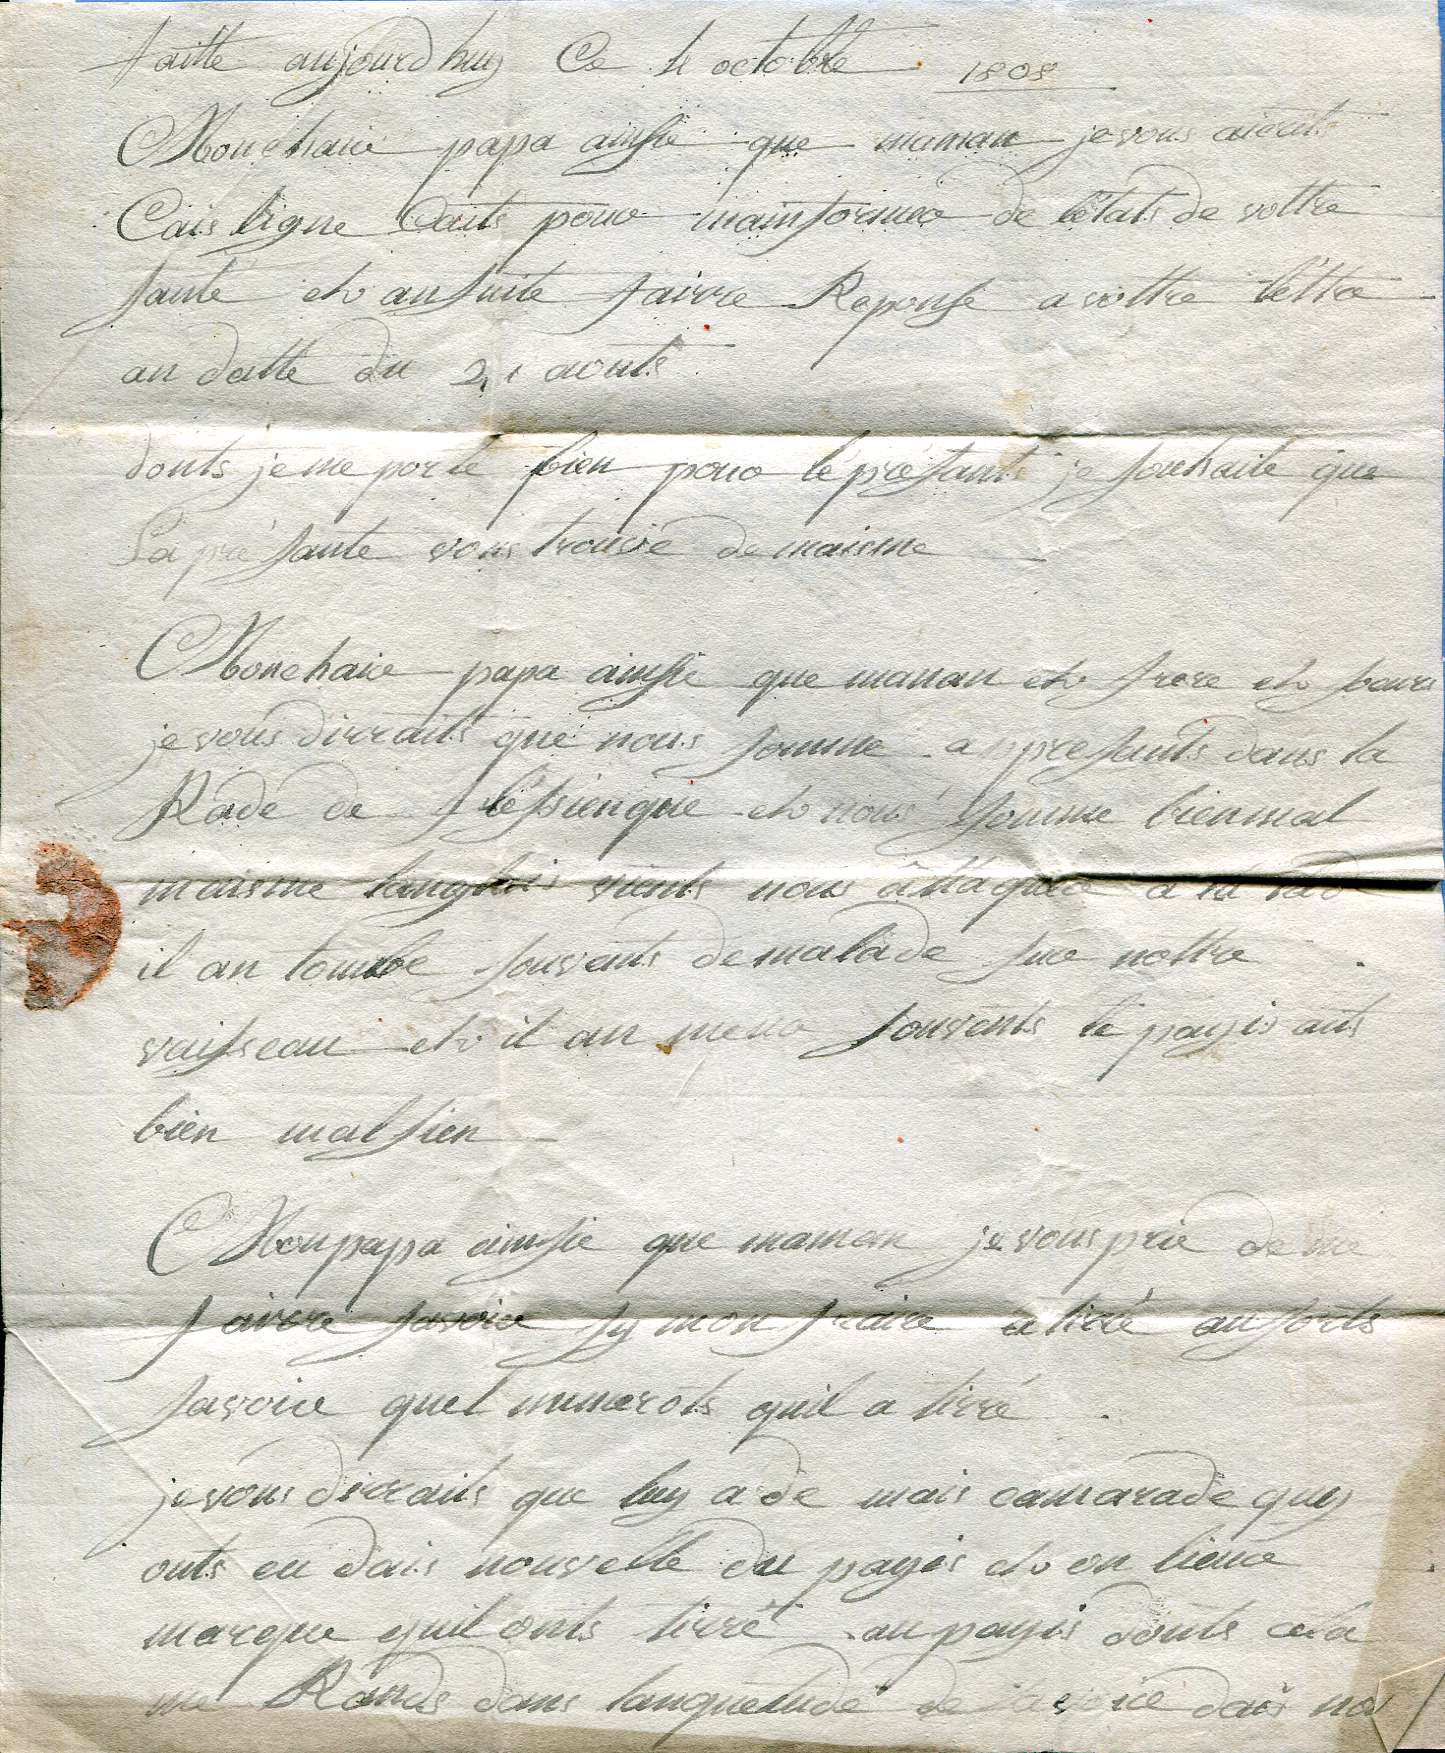 faitte aujourdhuy Ce 4 octobre 1808
Monchaire papa ainsie que maman je vous aicrits
Cais ligne Cauts pour mainformer de létats de vottre
santé et ansuite fairre Reponse a vottre léttre
an datte du 21 aouts
donts je me porte bien pour lé présants je souhaite que
La présante vous trouve de maisme
Monchaire papa ainsie que maman et frere et seur
je vous dirraits que nous somme appresants dans la
Rade de flésiengue et nous somme bien mal
maisme langlais vients nous attaquer a la rade
il an tombe souvants de malade sur nottre
vaisseau et il an meur souvants le payis aits
bien malsien
Mon papa ainsie que maman je vous prie de me
fairre savoire sy mon fraire a tirré au sorts
savoire quel numerots quil a tirré
je vous dirraits que luy a de mais camarade quy
onts eu dais nouvelle du payis et on lieur
marque quil onts tirré au payis donts cela
me Rands dans lanquetude de savoire dais nou